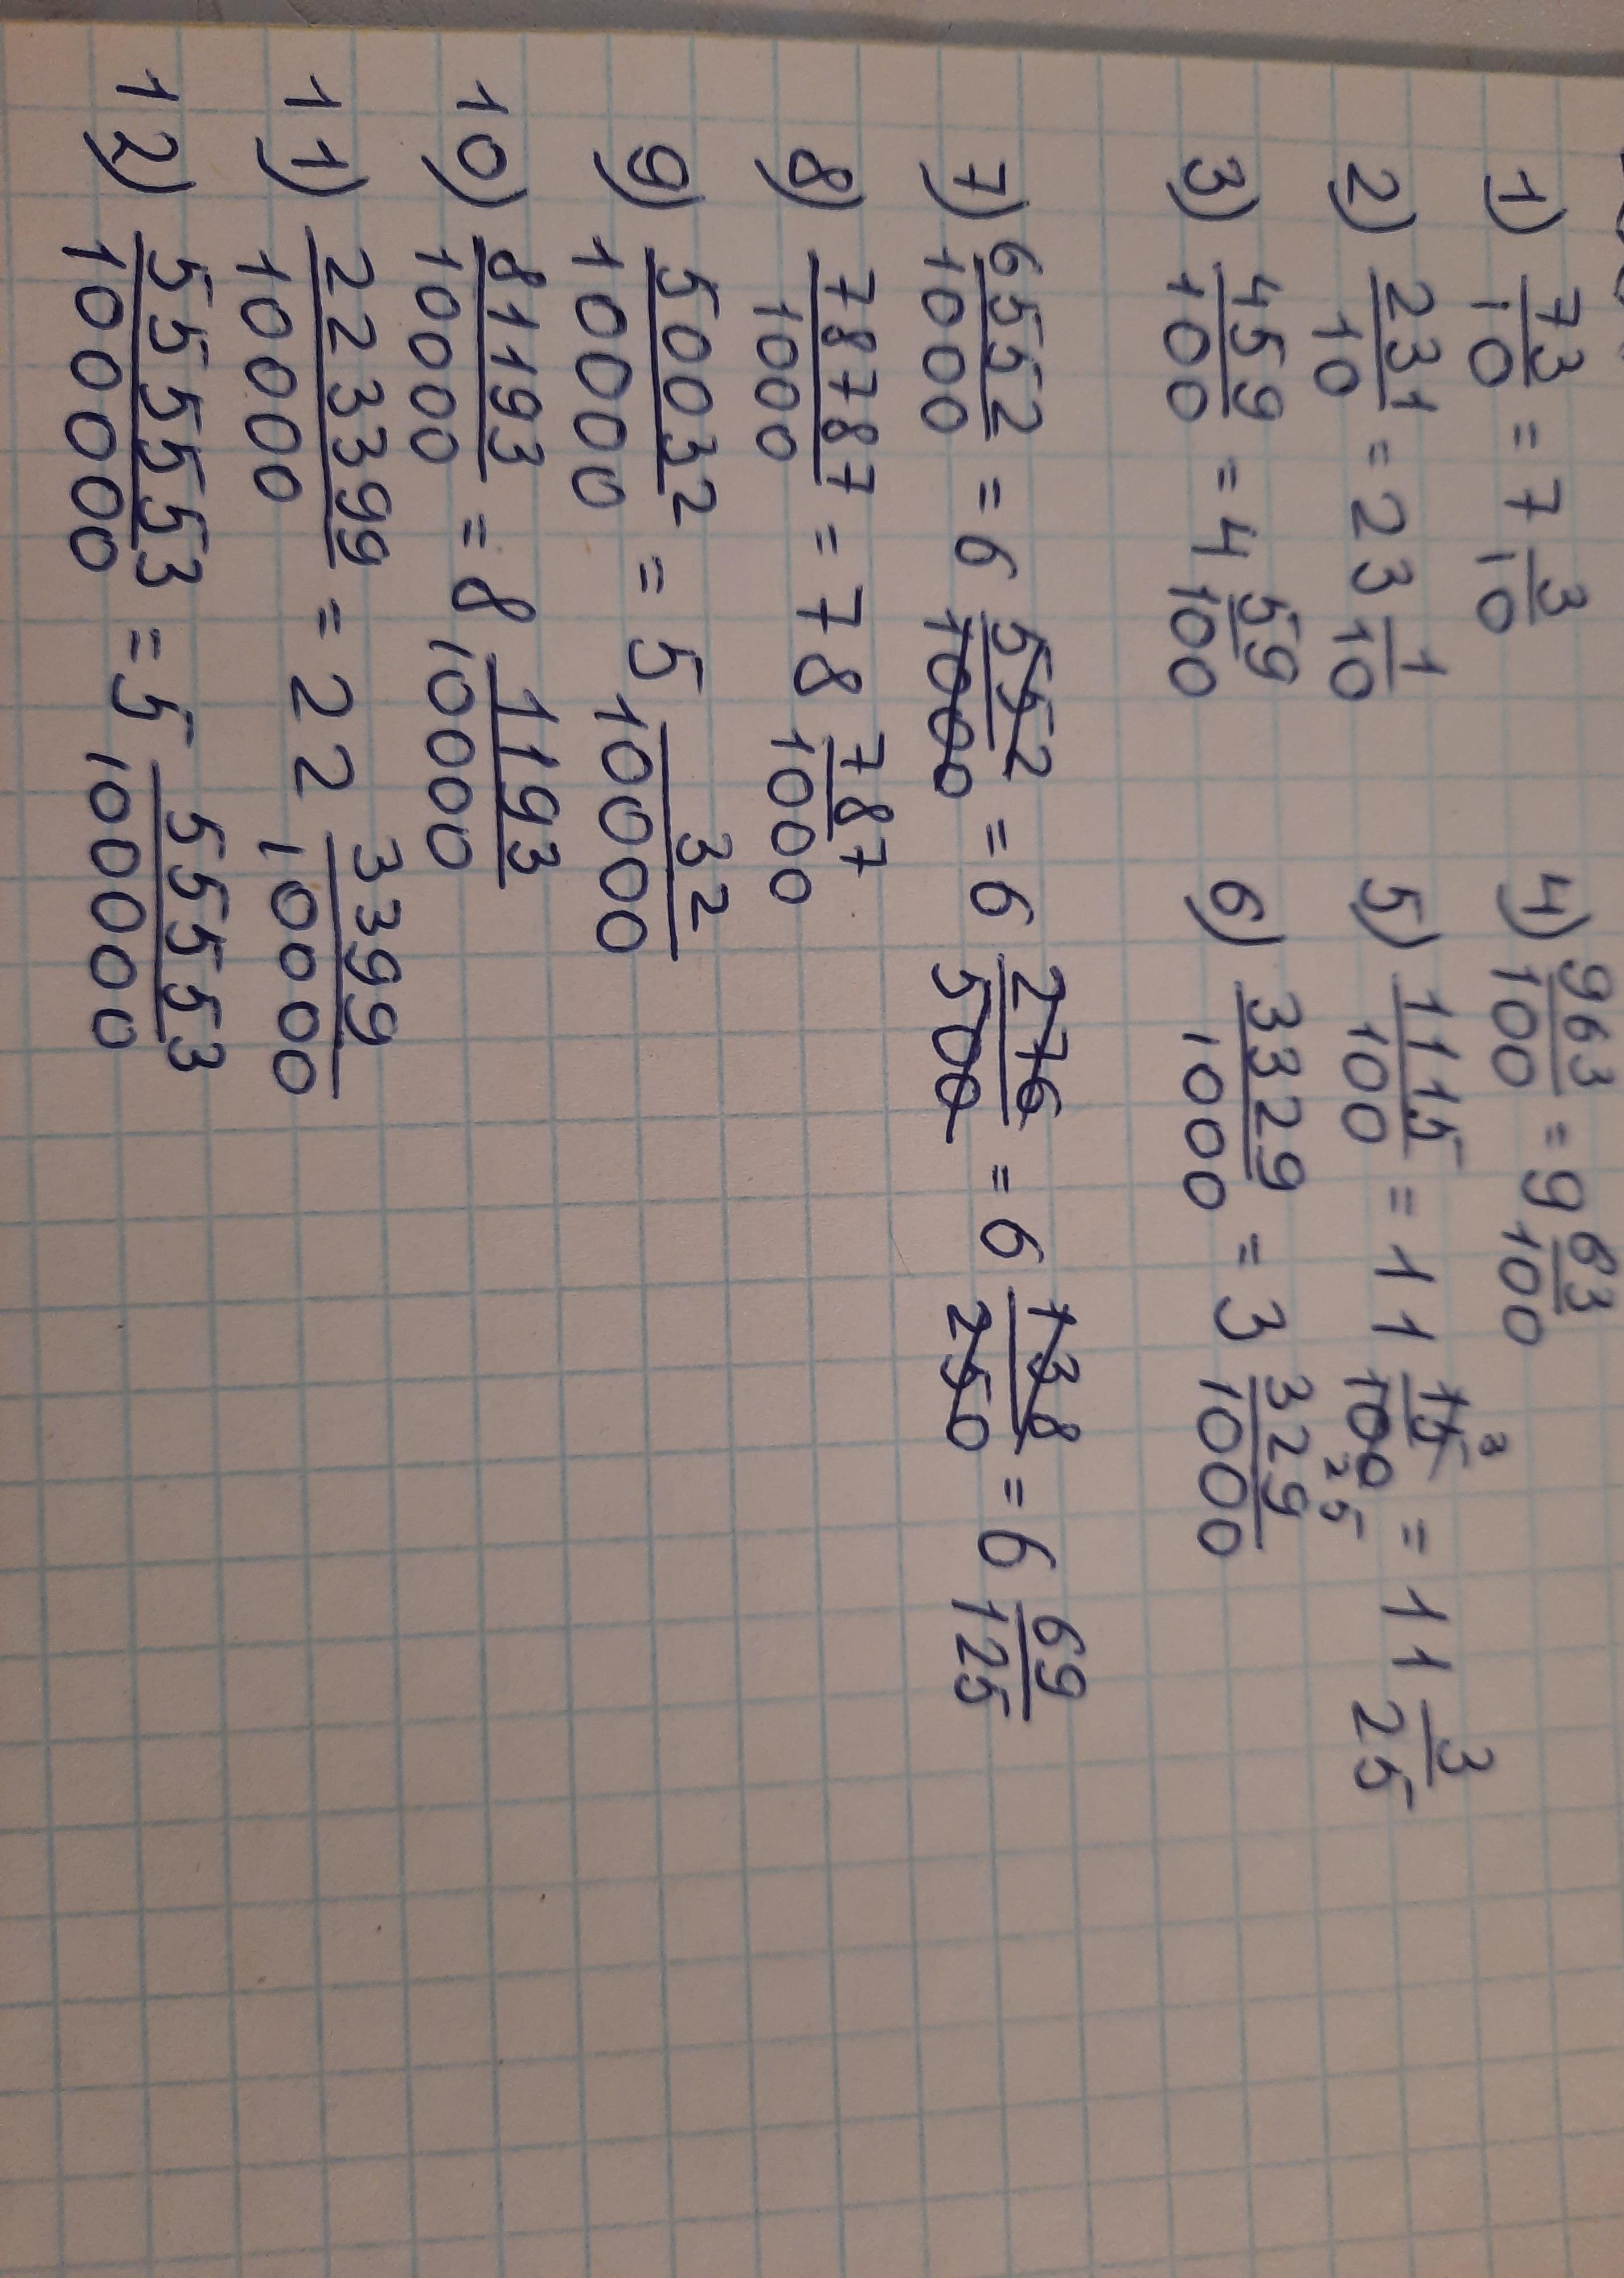 1) 73/10 = 7 3/10
2) 231/10 = 23 1/10
3) 459/100 = 4 59/100
4) 963/100 = 9 63/100
5) 1115/100 = 11 15/100 3 25 = 11 3/25
6) 3329/1000 = 3 329/1000
7) 6552/1000 = 6 552/1000 = 6 276/500 = 6 138/250 = 6 69/125
8) 78787/1000 = 78 787/1000
9) 50032/10000 = 5 32/10000
10) 81193/10000 = 8 1193/10000
11) 223399/10000 = 22 3399/10000
12) 555553/100000 = 5 55553/100000